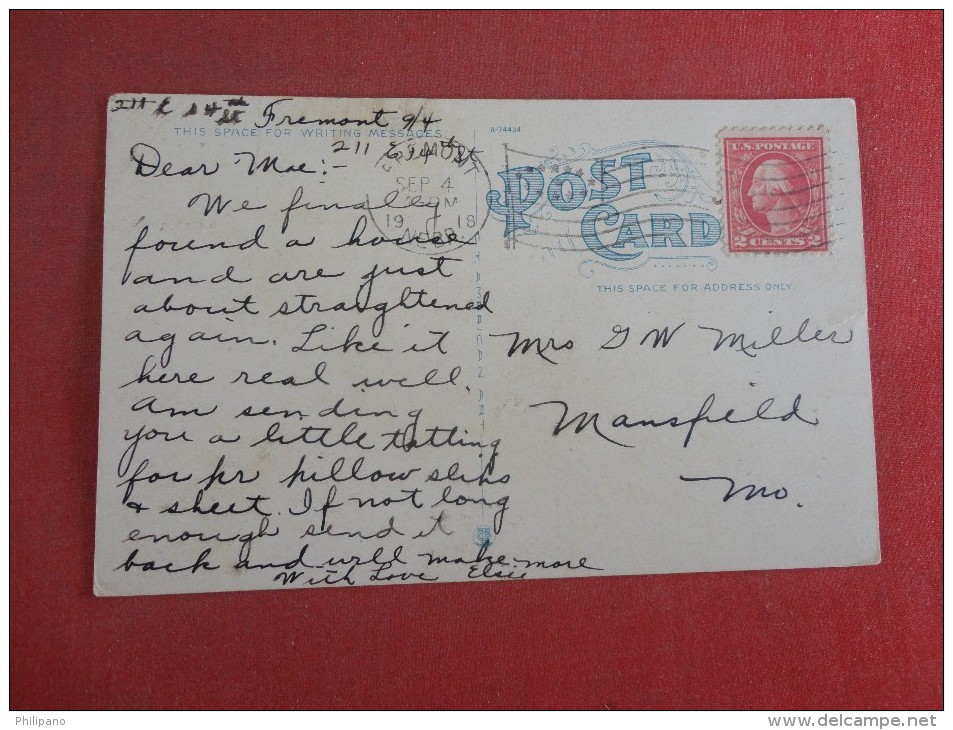 211 E 14th St
Fremont 9/4
THIS SPACE FOR WRITING MESSAGES
A-74434
211 E 14th St
Dear Mae:-
We finally
found a house
and are just
about straightened
again. Like it
here real well.
Am sending
you a little tatting
for pr pillow slips
& sheet. If not long
enough send it
back and will make more
With Love Elsie
FREMONT
SEP 4
PM
19 18
NEBR.
POST
CARD
THIS SPACE FOR ADDRESS ONLY.
U.S. POSTAGE
2 CENTS 2
Mrs G W Miller
Mansfield
Mo.
Philipano
www.delcampe.net